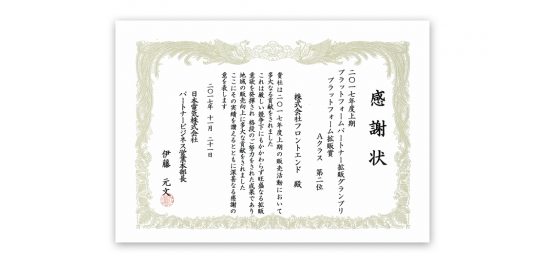 感謝状
二〇一七年度上期
プラットフォームパートナー拡販グランプリ
プラットフォーム拡販賞
Aクラス 第二位
株式会社フロントエンド 殿
貴社は二〇一七年度上期の販売活動において
多大なる貢献をされました
これは厳しい競争下にもかかわらず旺盛なる拡販
意欲を発揮され格段のご努力をされた成果であり
地域の販売向上に多大な貢献をされました
ここにその実績を讃えるとともに深甚なる感謝の
意を表します
二〇一七年 十一月 二十一日
日本電気株式会社
パートナービジネス営業本部長
伊藤 元文